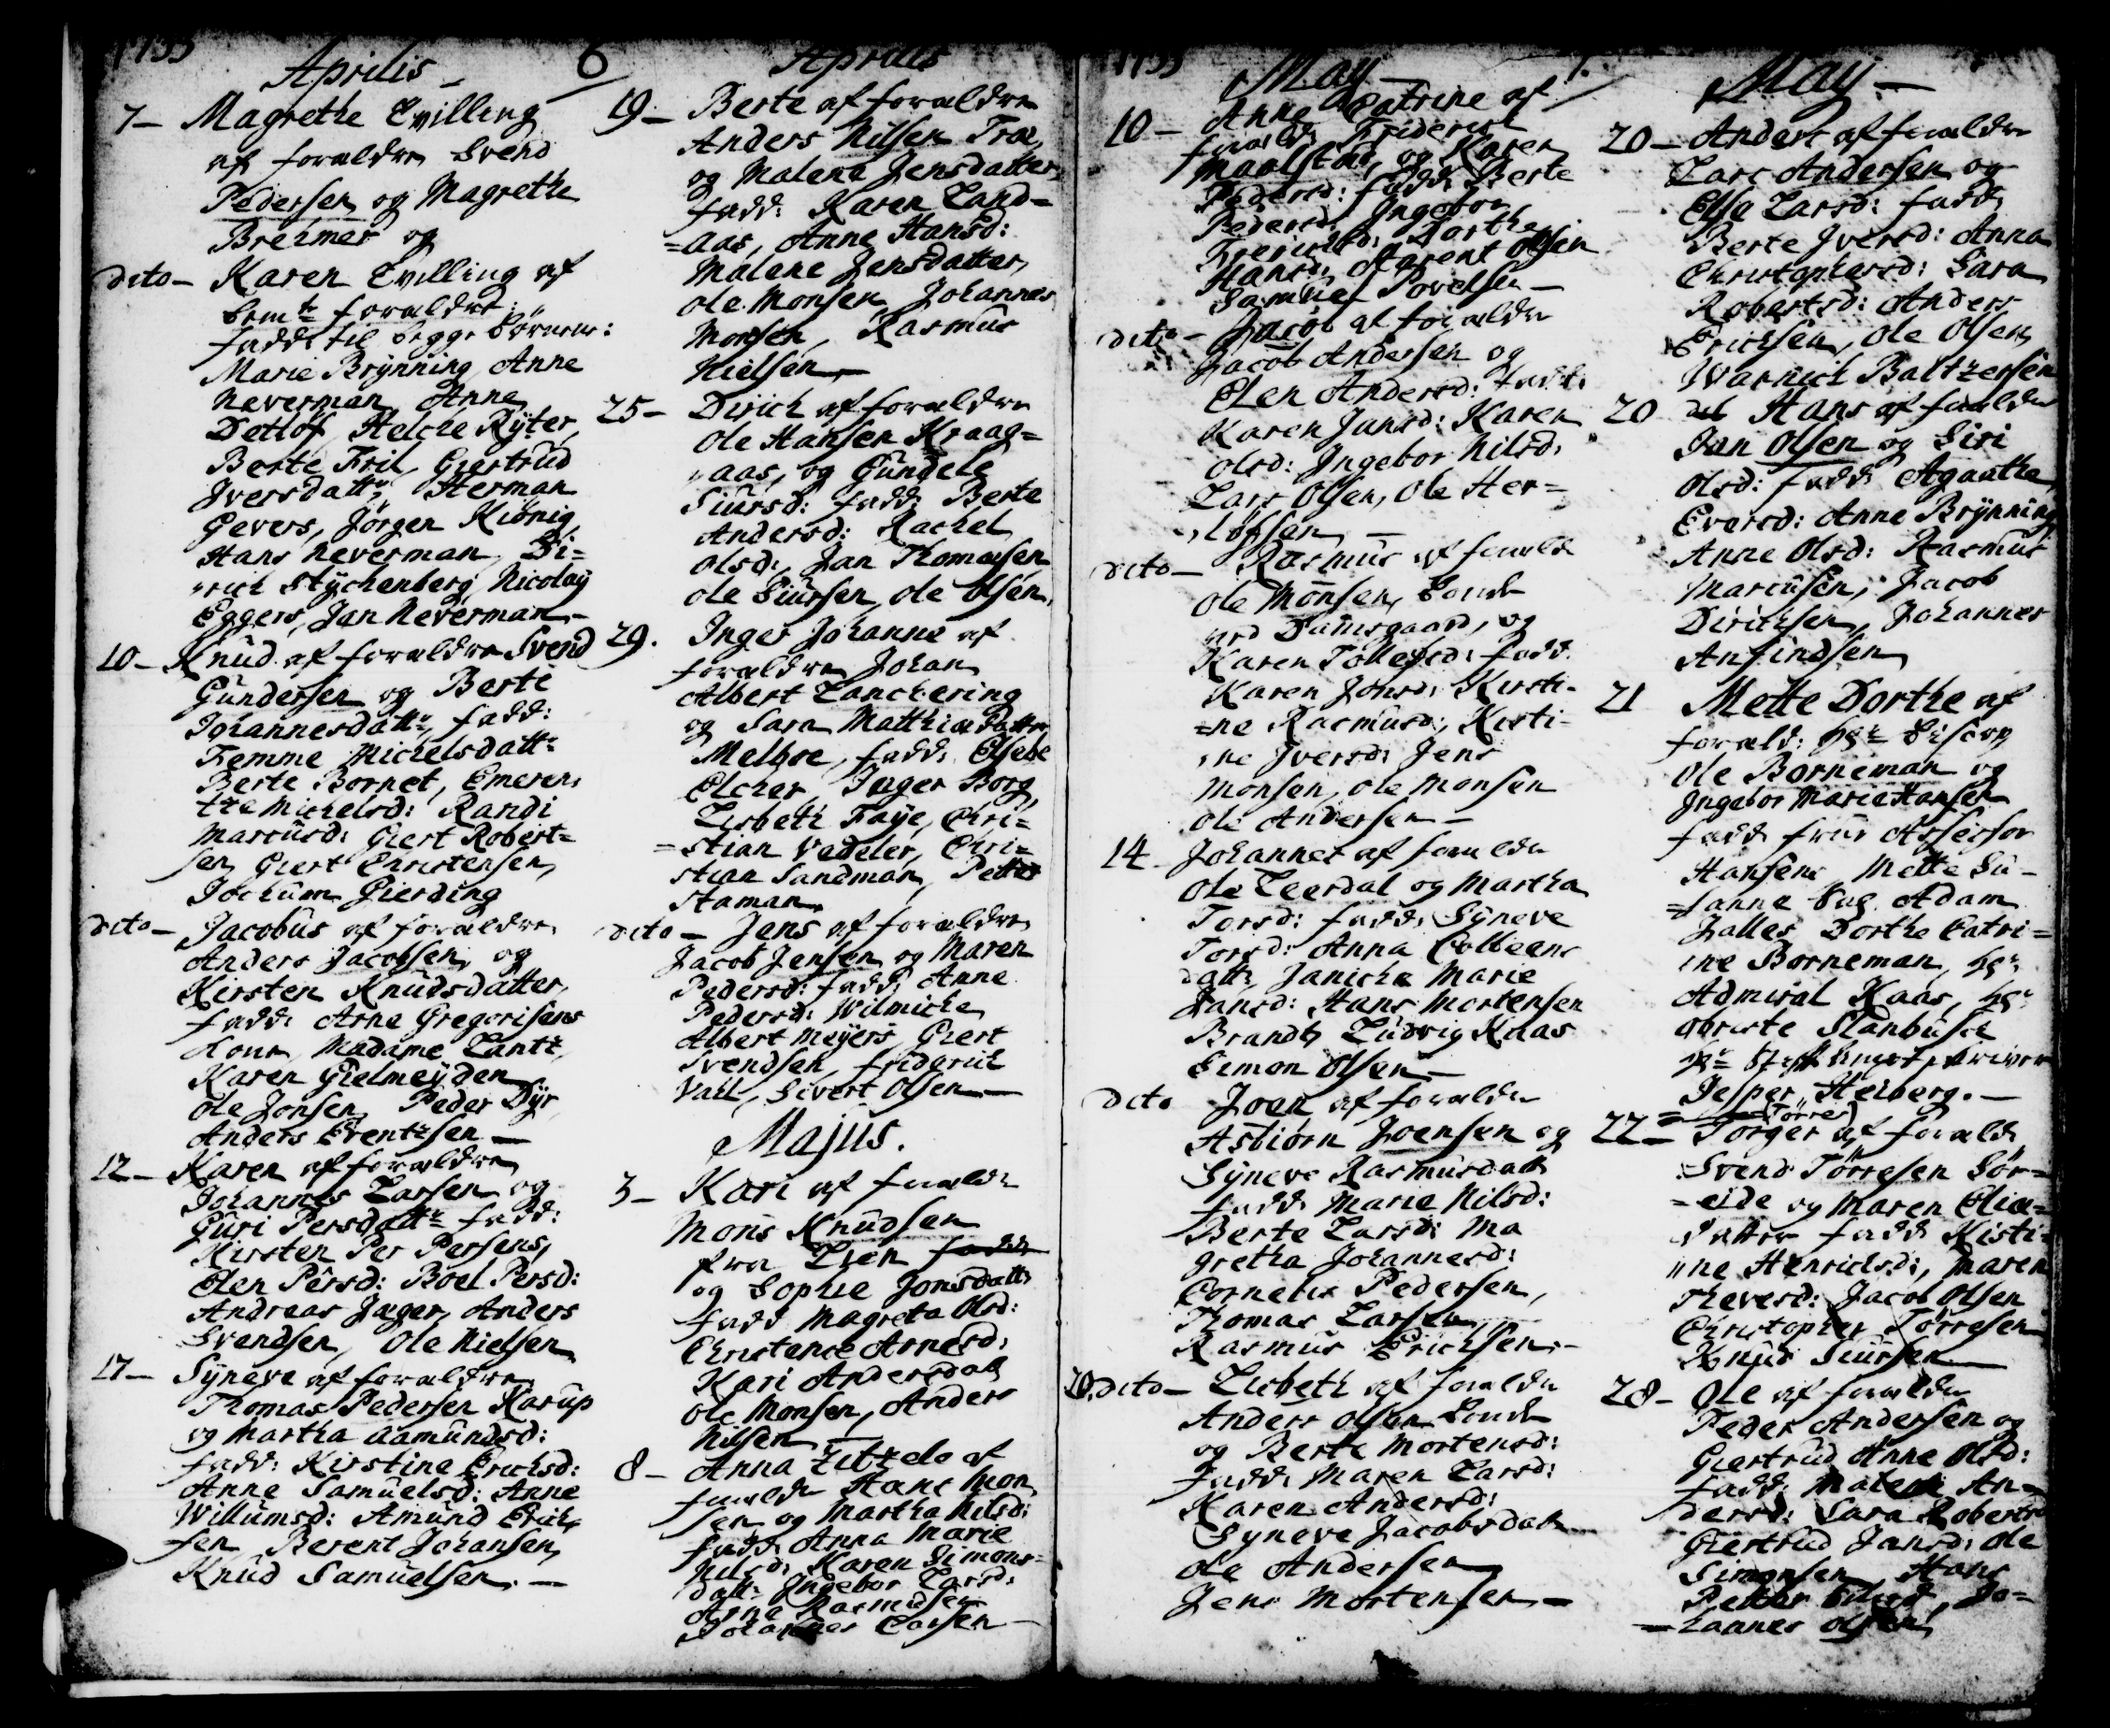 1733
Aprilis
6
7 - Magrethe Tvilling
af forældre Svend
Pedersen og Magrethe
Brehmer og
dito - Karen Tvilling af
bemte forældre
fadd: til begge børnene:
Marie Brÿnning, Anne
Neverman, Anne
Detlof, Helche Rÿter,
Berte Friil, Giertrud
Iversdattr, Herman
Gevers, Jørgen Kiønig,
Hans Neverman, Di=
rich Stÿchenberg, Nicolaÿ
Eggers, Jan Neverman -
10 - Knud af forældre Svend
Gundersen og Berte
Johannesdattr, fadd:
Femme Michelsdattr
Berte Bornet, Emeren,
tze Michelsd: Randi
Marcusd: Giert Robert=
sen, Giert Christensen,
Jochum Gierding
dito - Jacobus af forældre
Anders Jacobsen og
Kirsten Knudsdatter,
fadd: Arne Gregorisens
Kone, Madame Lantz,
Karen Gielmeÿden,
Ole Jonsen, Peder Dÿr,
Anders Brentzen -
12 - Karen af forældre
Johannes Larsen og
Guri Persdattr fadd:
Kirsten Per Persens,
Elen Persd: Boel Persd:
Andreas Jæger, Anders
Svendsen, Ole Nielsen
17 - Sÿneve af forældre
Thomas Pedersen Karup
og Martha Aamundsd:
fadd: Kirstine Erichsd:
Anne Samuelsd: Anne
Willumsd: Amund Erich
sen Berent Johansen,
Knud Samuelsen. -
Aprilis
19 - Berte af forældre
Anders Nilsen Træ,
og Malena Jensdatter,
fadd: Karen Land=
=aas, Anne Hansd:
Malene Jensdatter,
Ole Monsen, Johannes
Monsen, Rasmus
Nielsen -
25 - Dirich af forældre
Ole Hansen Kraag=
aas, og Gundele
Siursd: fadd: Berte
Andersd: Rachel
Olsd: Jan Thomæsen
Ole Siursen, Ole Olsen.
29. Inger Johanne af
forældre Johan
Albert Lanchering
og Sara Matthiædatter
Meltzer, fadd: Elsebe
Elcher, Inger Borg,
Lisbeth Faÿe, Chri=
=stian Vedeler, Chri=
stian Sandman, Petter
Staman
dito - Jens af forældre
Jacob Jensen og Maren
Pedersd: fadd: Anne
Pedersd: Wilmiche
Albert Meÿers, Giert
Svendsen, Friderich
Vall, Sivert Olsen -
Majus.
3 - Kari af forældr
Mons Knudsen
fra Lien fadd:
og Sophie Jonsdatt:
fadd Magreta Olsd:
Christence Arnesd:
Kari Andersdatt
Ole Monsen, Anders
Nilsen -
8 - Anna Zitzele af
forældr Hans Mon
sen og Martha Nilsd:
fadd: Anna Marie
Nilsd: Karen Simons=
datt: Ingebor Larsd:
Arne Rasmusen
Johannes Larsen -
1733
May -
10 - Anne Catrine af
foræld: Friderich
Maalstad, og Karen
Pedersd: fadd: Berte
Pedersd: Ingebor
Frerichsd: Dorthe
Hansd: Arent Olsen
Samuel Povelsen -
dito - Jacob af forældre
Jacob Andersen og
Elen Andersd: fadd:
Karen Jansd: Karen
Olsd: Ingebor Nilsd:
Lars Olsen, Ole Her=
løfsen -
dito - Rasmus af forældr
Ole Monsen,
ved Damsgaard, og
Karen Tollefsd: fadd.
Karen Johsd: Kirsti-
=ne Rasmusd: Kirsti-
ne Iversd: Jens
Monsen, Ole Monsen
Ole Andersen -
14 - Johannes af forældr
Ole Leerdal og Martha
Torsd: fadd: Sÿneve
Torsd: Anna Colbeens
datt: Janicha Marie
Jansd: Hans Mortensen
Brandt, Ludvig Kaas
Simon Olsen -
dito Joen af forældr
Asbiørn Joensen og
Sÿneve Rasmusdatt
fadd: Marie Nilsd:
Berte Larsd: Ma
gretha Johannesd:
Cornelis Pedersen,
Thomas Larsen
Rasmus Erichsen -
20. dito - Lisbeth af forældr
Anders Olsen
og Berte Mortensd:
fadd: Maren Larsd:
Karen Andersd:
Sÿneve Jacobsdatt
Ole Andersen
Jens Mortensen -
May -
20 - Anders af forældre
Lars Andersen og
Else Larsd: fadd:
Berte Iversd: Anna
Christophersd: Sara
Robertsd: Anders
Erichsen, Ole Olsen,
Warnich Baltzersen
20 Hans af forældr
Jan Olsen og Siri
Olsd: fadd: Agaathe
Eversd: Anne Brÿnning
Anne Olsd: Rasmus
Marcusen, Jacob
Dirichsen, Johannes
Anfindsen
21 Mette Dorthe af
foræld: Hr Biscop
Ole Borneman og
Ingebor Marie Hansen
fadd: frue Assessor
Hansens, Mette Su-
=sanne Adam
Jalles Dorthe Catri=
ne Borneman, Hr
Admiral Kaas, Hr
Obriste Stanbusch
Hr
Jesper Heiberg. -
(Tørres)
22 = Torger af foræld:
Svend Tørresen Sør=
=eide og Maren Eliæ=
datter fadd: Kisti-
ne Henrichsd:, Maren
Iheversd: Jacob Olsen
Christopher Tørresen
Knud Siursen -
28 - Ole af forældr
Peder Andersen og
Giertrud Anne Olsd:
fadd: Malene An=
dersd: Sara Robertsd
Giertrud Jansd: Ole
Simonsen, Hans
Jo=
hannes Olsen